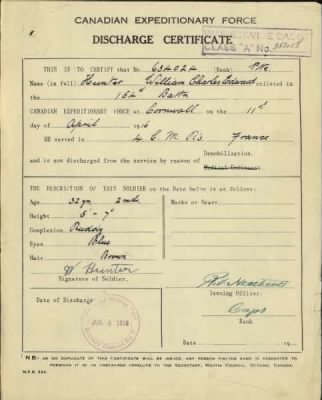 CANADIAN EXPEDITIONARY FORCE
DISCHARGE CERTIFICATE
CLASS "A" No.
THIS IS TO CERTIFY that No. 634024 (Rank) Pte.
Name (in full) Hunter William Charles Edward enlisted in
the 154th Battn
CANADIAN EXPEDITIONARY FORCE at Cornwall on the 11th
day of April 1916
HE served in 4 C.M.Rs. France
and is now discharged from the service by reason of Demobilization.
Medical Unfitness
THE DESCRIPTION OF THIS SOLDIER on the Date below is as follows:
Age 32 yrs 2 mths.
Marks or Scars
Height 5 - 7"
Complexion Ruddy
Eyes Blue
Hair Brown
W Hunter
Signature of Soldier.
Issuing Officer.
Date of Discharge
Capt
Rank
Date 19
N.B.- AS NO DUPLICATE OF THIS CERTIFICATE WILL BE ISSUED, ANY PERSON FINDING SAME IS REQUESTED TO
FORWARD IT IN AN UNSTAMPED ENVELOPE TO THE SECRETARY, MILITIA COUNCIL, OTTAWA, CANADA.